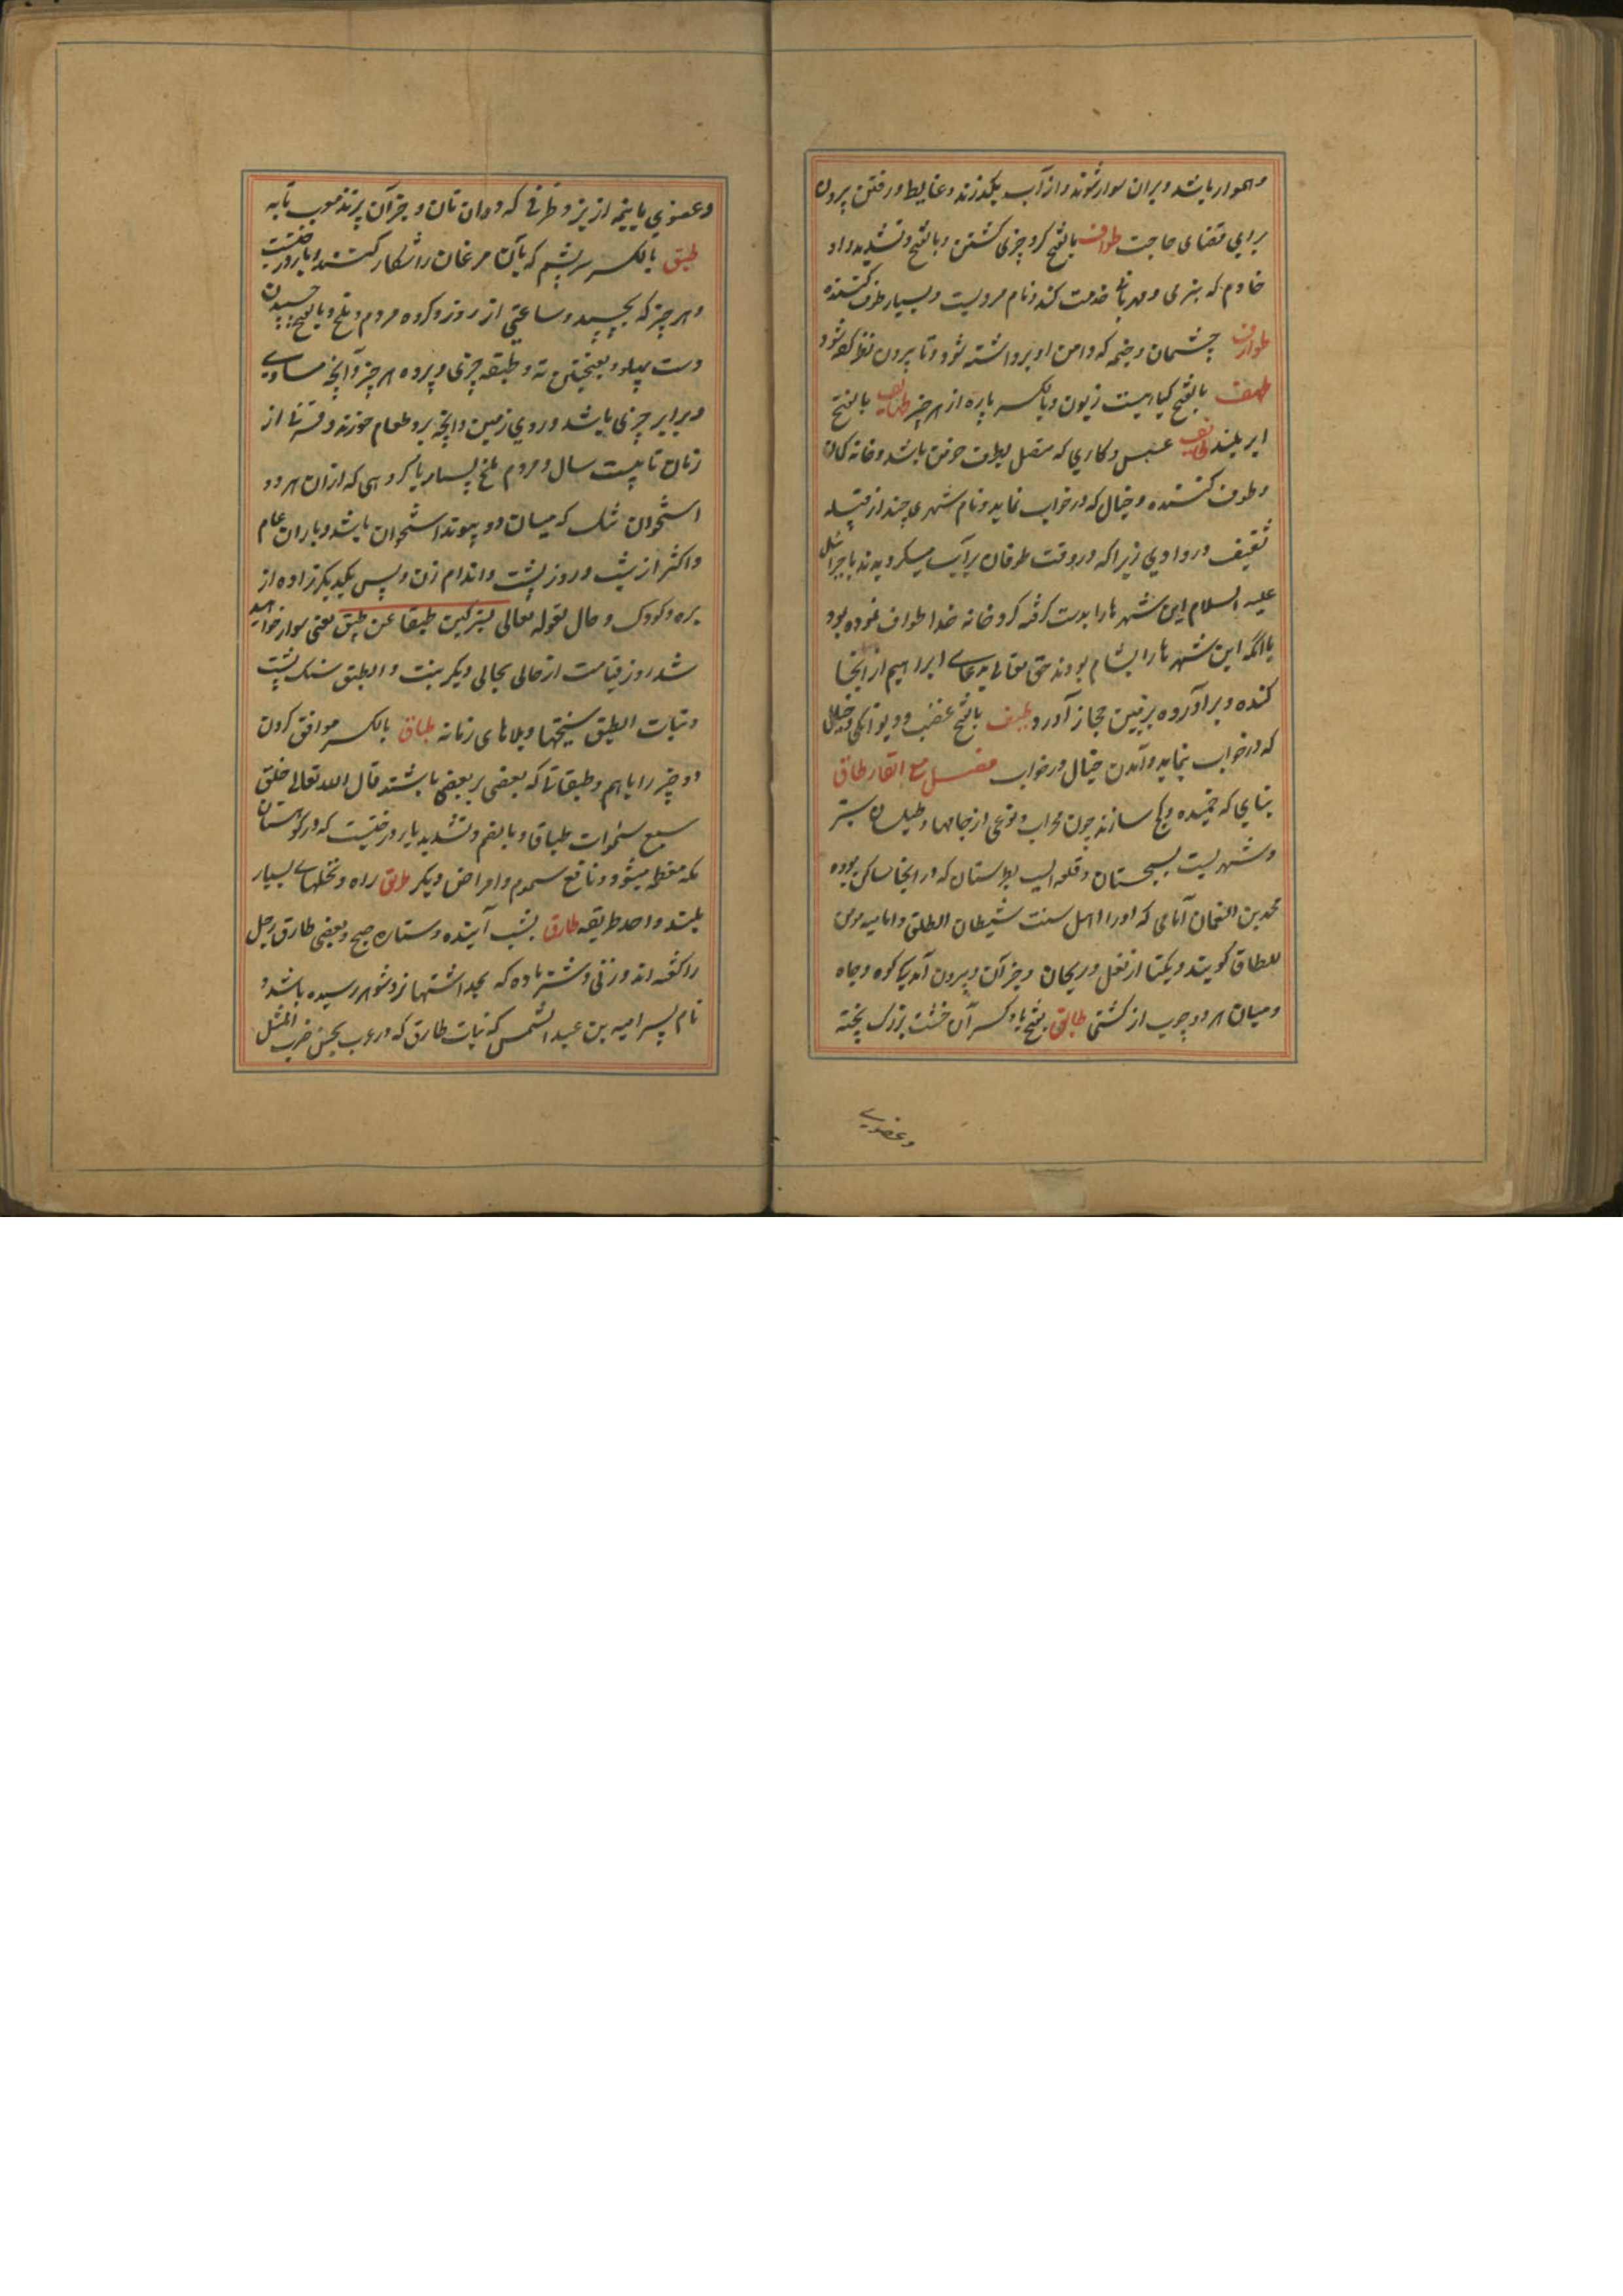 و هموار باشد و بران سوار شوند و از آب بگذرند و غایط و رفتن بیرون
برای قضای حاجت طواف بالفتح کرد چیزی گشتن و بالفتح و تشدید واو
خادم که بنرمی و مهربانی خدمت کند و نام مردیست و بسیار طوف کننده
طوارف چشمان و خیمه که دامن او برداشته شود و تا بیرون نظر کرده شود
طهف بالفتح گیاهیست زبون و بالکسر پاره از هر چیز طهایف بالفتح
ابر بلند طایف عسس و کاری که متصل بطرف حوض باشد و خانه کمان
و طوف کننده و خیال که در خواب نماید و نام شهر
ثقیف در وادی زیرا که در وقت طوفان بر آب میگردیدند یا جبرائیل
علیه السلام این شهر ها را بدست گرفته گرد خانه خدا طواف نموده بود
یا آنکه این شهر ها را بشام بودند حق تعالی بدعای ابراهیم از انجا
کنده و برآورده بزمین حجاز آورد طیف بالفتح غضب و دیوانگی و خیالی
که در خواب بنماید و آمدن خیال در خواب فصل مع القاف طاق
بنایی که خمیده و کج سازند چون محراب و نوعی از جامها و طیلسان سبز
و شهریست بسیجستان و قلعه ایست بطبرستان که در انجا ساکن بوده
محمد بن النعمان آنامی که او را اهل سنت شیطان الطاق و امامیه مومن
للطاق گویند و یکتا از نعل و ریحان و جز آن و بیرون آمدیکی کوه و چاه
و میان هر دو چوب از کشتی طابق بفتح با و کسر آن خشت بزرگ پخته
وعضوے
و عضوی یا نیمه از بز و ظرفی که در ان نان و جز آن پزند معرب تابه
طبق بالکسر سریشم که بآن مرغان را شکار کنند و بار درختیست
و هر چیز که بچسپد و ساعتی از روز و گروه مردم و ملخ و بالفتح چسپیدن
دست بپهلو و بفتحتین ته و طبقه چیزی و پرده هر چیز و آنچه مساوی
و برابر چیزی باشد و روی زمین و آنچه برو طعام خورند و قرنی از
زمان تا بیست سال و مردم ملخ بسیار یا گروهی که ازان هر دو
استخوان تنک که میان دو پیوند استخوان باشد و باران عام
و اکثر از شب و روز و پشت و اندام زن و پس یکدیگر زاده از
بره و کودک و حال لقوله تعالی لترکبن طبقا عن طبق یعنی سوار خواهید
شد روز قیامت از حالی بحالی دیگر بنت و الطبق سنگ پشت
و بنات الطبق سختیها و بلاهای زمانه طباق بالکسر موافق کردن
دو چیز را باهم و طبقاتا که بعضی بر بعضی باشند قال الله تعالی خلق
سبع سموات طباقا و بالضم و تشدید با درختیست که در کوهستان
مکه معظمه میشود و نافع سموم و امراض دیگر طرق راه و نخلهای بسیار
بلند واحد طریقه طارق بشب آینده و ستاره صبح و بعضی طارق زحل
را گفته اند و زنی و شتر ماده که بحد اشتها نزد شوهر رسیده باشد و
نام پسر امیه بن عبد الشمس که بنات طارق که در عرب بحسن ضرب المثل